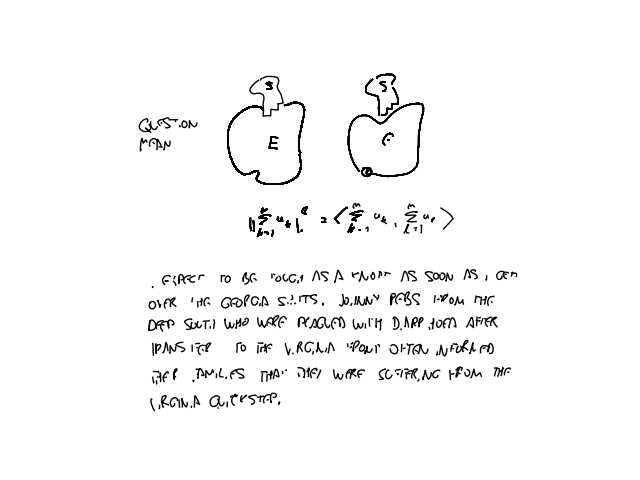 S S
QUESTION
MEAN
E
‖∑_{k=1}^{n} u_k‖² = ⟨∑_{k=1}^{n} u_k, ∑_{l=1}^{n} u_l⟩
I EXPECT TO BE TOUGH AS A KNOT AS SOON AS I GET
OVER THE GEORGIA SHITS. JOHNNY REBS FROM THE
DEEP SOUTH WHO WERE PLAGUED WITH DIARRHOEA AFTER
TRANSFER TO THE VIRGINIA FRONT OFTEN INFORMED
THEIR FAMILIES THAT THEY WERE SUFFERING FROM THE
VIRGINIA QUICKSTEP.